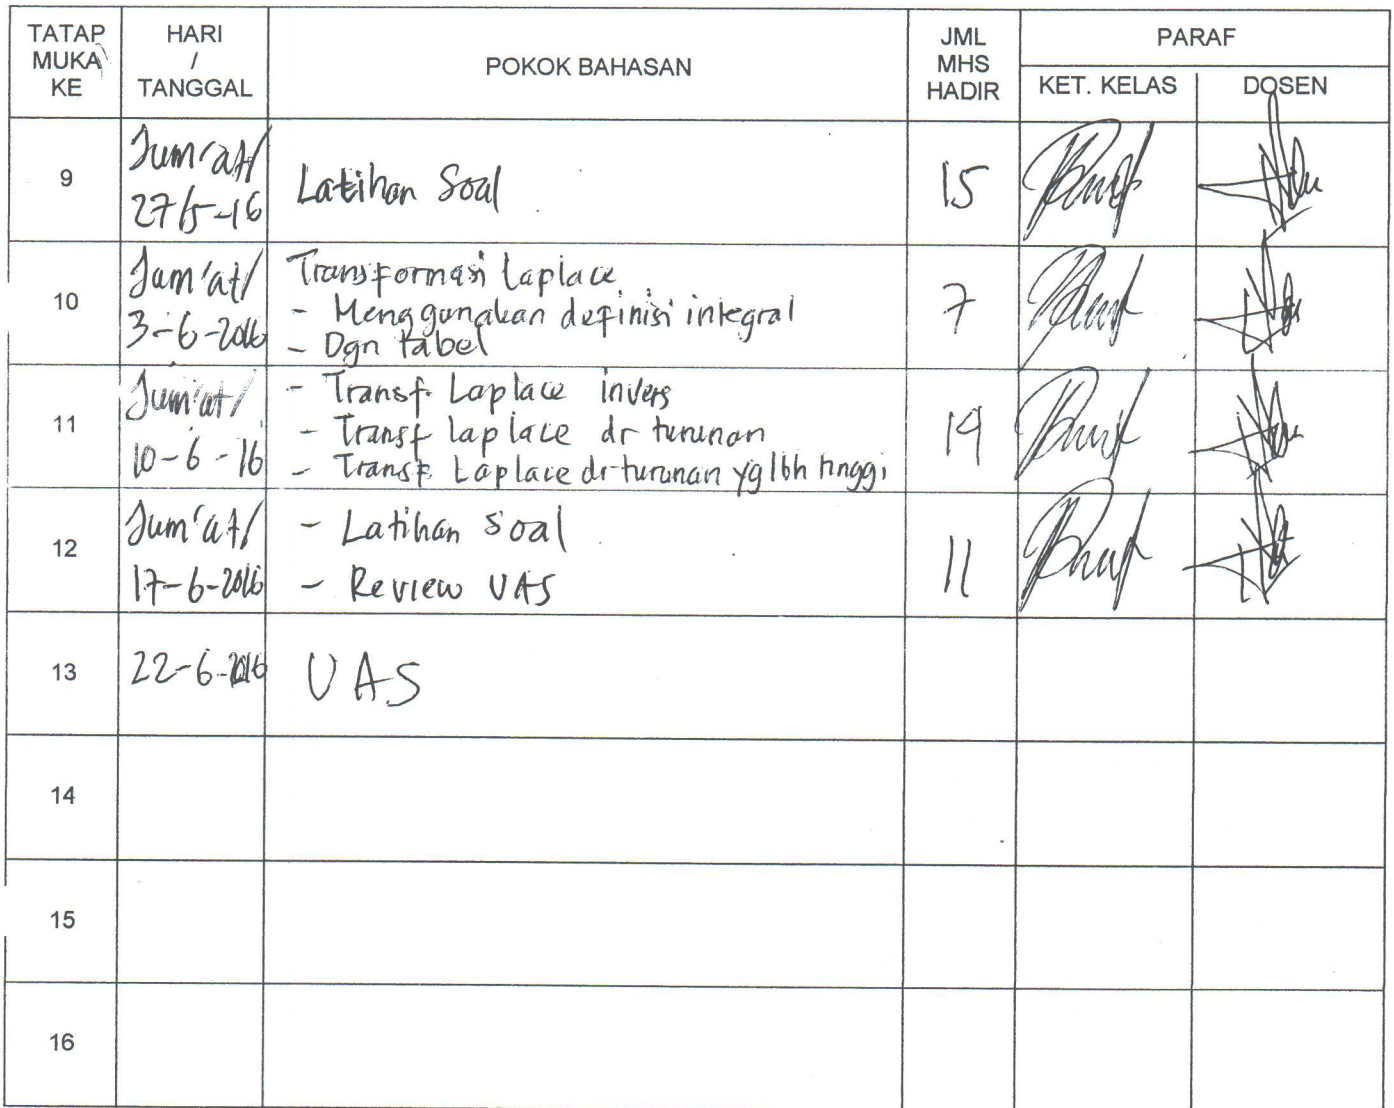 TATAP MUKA KE
HARI / TANGGAL
POKOK BAHASAN
JML MHS HADIR
PARAF
KET. KELAS
DOSEN
9
Jum'at/
27/5-16
Latihan Soal
15
10
Jum'at/
3-6-2016
Transformasi Laplace
- Menggunakan definisi integral
- Dgn tabel
7
11
Jum'at/
10-6-16
- Transf. Laplace invers
- Transf laplace dr turunan
- Transf. Laplace dr turunan yg lbh tinggi
19
12
Jum'at/
17-6-2016
- Latihan Soal
- Review UAS
11
13
22-6-2016
UAS
14
15
16